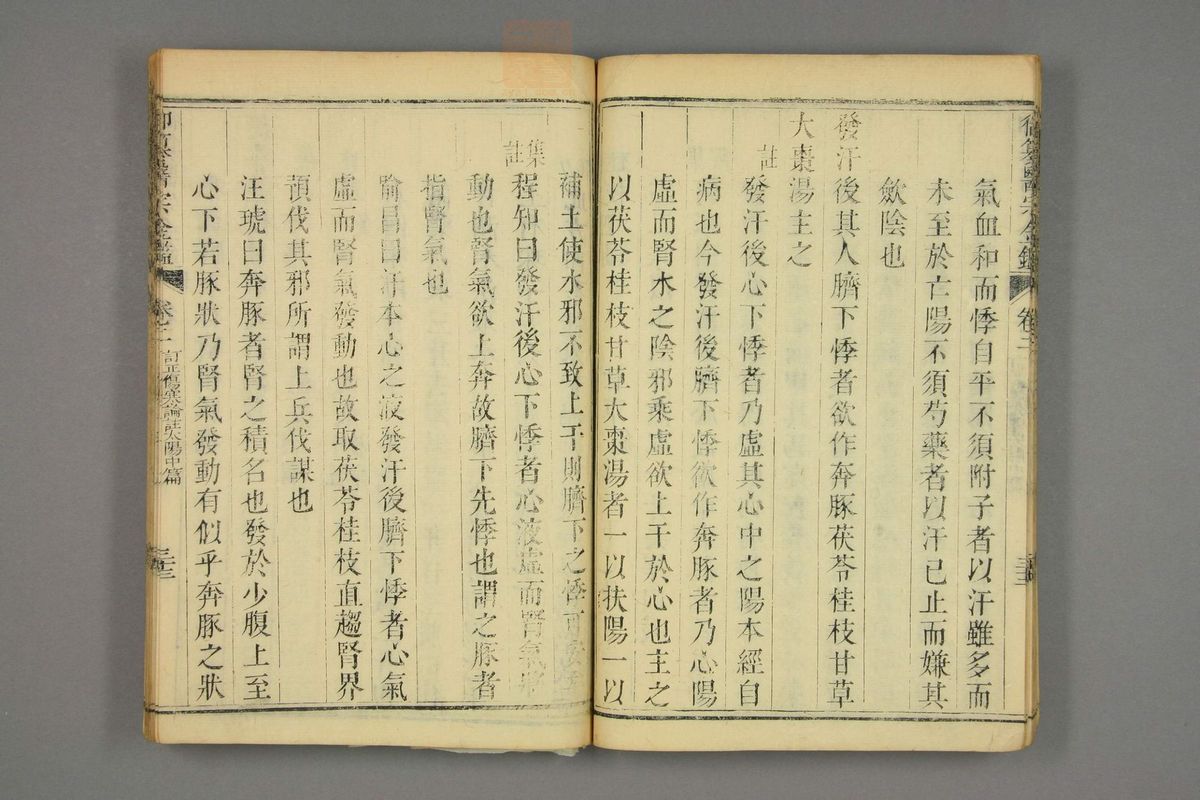 氣血和而悸自平不須附子者以汗雖多而
未至於亡陽不須芍藥者以汗已止而嫌其
斂陰也
發汗後其人臍下悸者欲作奔豚茯苓桂枝甘草
大棗湯主之
註發汗後心下悸者乃虛其心中之陽本經自
病也今發汗後臍下悸欲作奔豚者乃心陽
虛而腎水之陰邪乘虛欲上干於心也主之
以茯苓桂枝甘草大棗湯者一以扶陽一以
補土使水邪不致上干則臍下之悸可安
集註程知曰發汗後心下悸者心液虛而腎氣將
動也腎氣欲上奔故臍下先悸也謂之豚者
指腎氣也
喻昌曰汗本心之液發汗後臍下悸者心氣
虛而腎氣發動也故取茯苓桂枝直趨腎界
預伐其邪所謂上兵伐謀也
汪琥曰奔豚者腎之積名也發於少腹上至
心下若豚狀乃腎氣發動有似乎奔豚之狀
御纂醫宗金鑑 卷之二 訂正傷寒論註太陽中篇